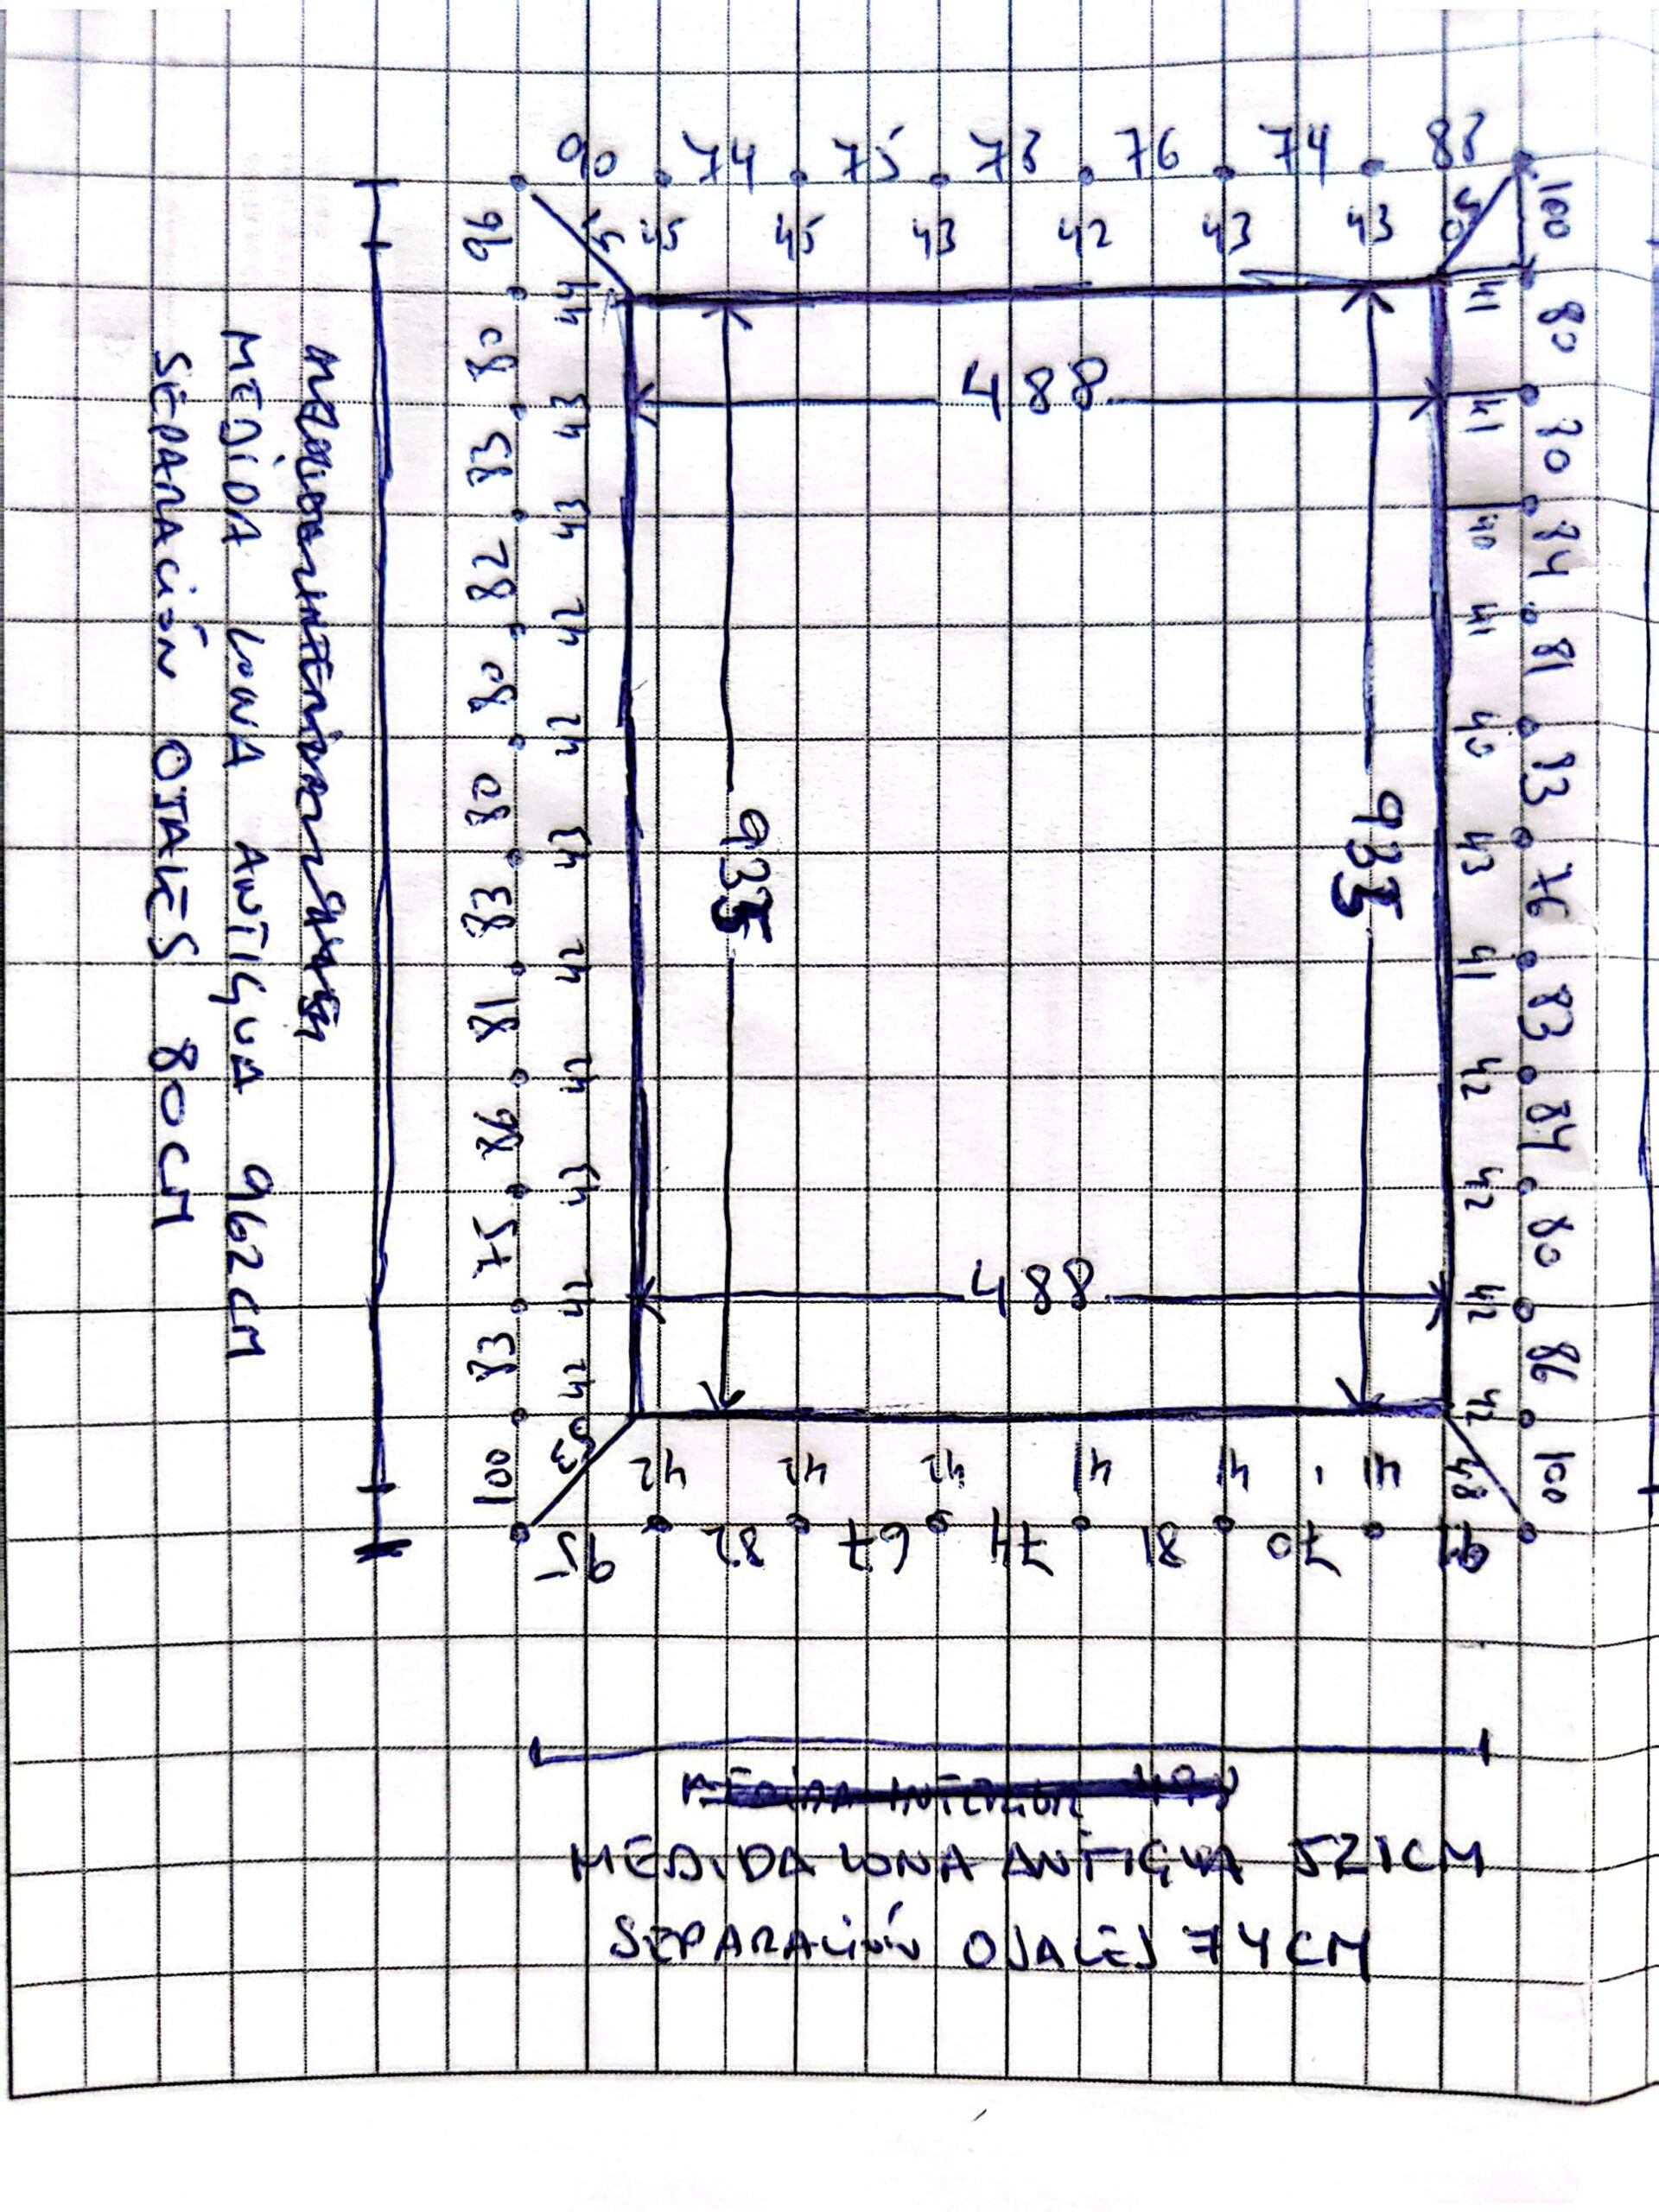 90 74 75 73 76 74 83
45 45 43 42 43 43
96 80 83 82 80 80 83 81 86 75 83 100
44 43 43 42 42 43 42 42 43 42 42
488
935
935
488
100 80 70 74 81 83 76 83 84 80 86 100
41 41 40 41 40 43 41 42 42 42 42
53 42 42 42 41 41 41 48
95 82 67 74 81 70
MEDIDA LONA ANTIGUA 962CM
SEPARACIÓN OJALES 80CM
MEDIDA LONA ANTIGUA 521CM
SEPARACIÓN OJALES 74CM